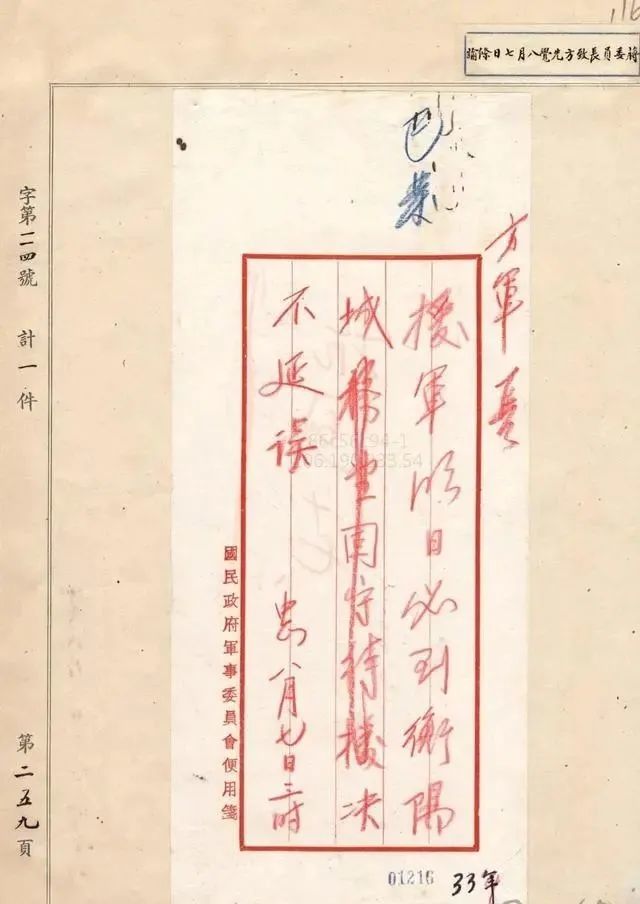 蔣委員長致方先覺八月七日諭
已發
方軍長
援軍明日必到衡陽
城務望固守待援決
不延誤
八月七日三時
國民政府軍事委員會便用箋
字第二四號 計一件
第二五九頁
01216
33年